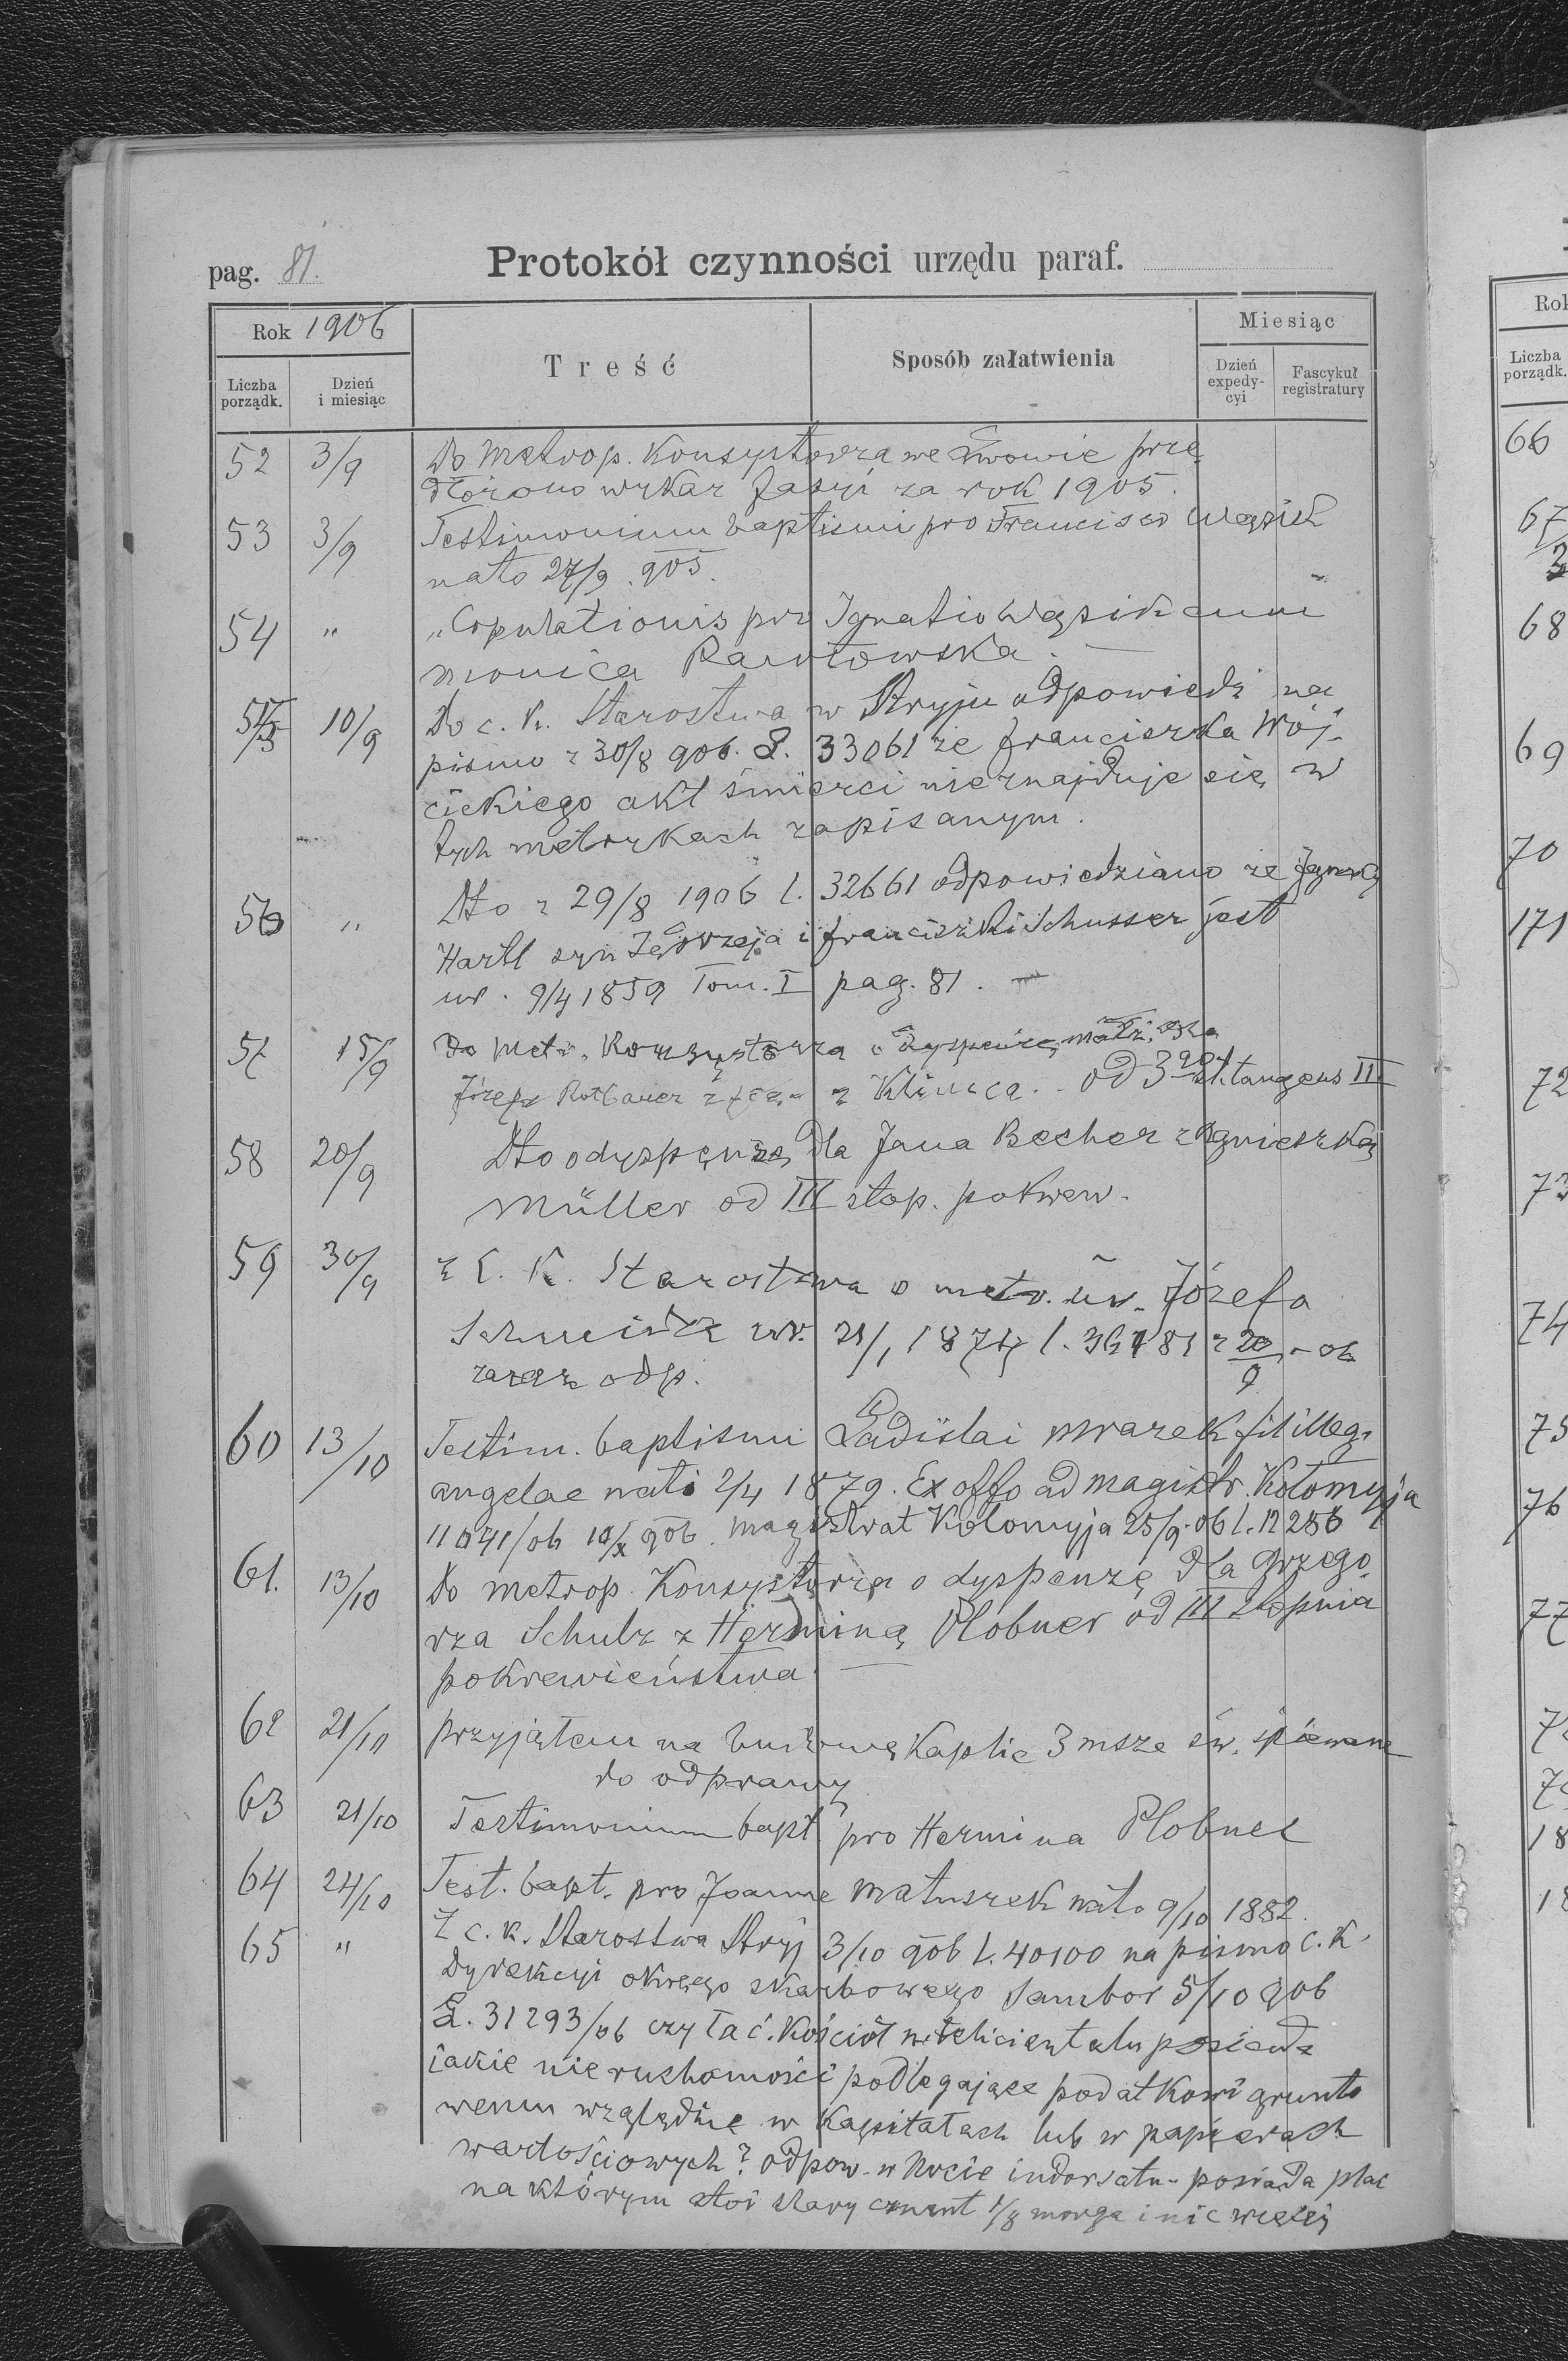 pag. 81.
Protokół czynności urzędu paraf.
Rok 1906
Treść
Sposób załatwienia
Miesiąc
Liczba porządk.
Dzień i miesiąc
Dzień expedy- cyi
Fascykuł registratury
52 3/9 Do Metrop. Konsystorza we Lwowie prze
dłożono wykaz fasyi za rok 1905.
53 3/9 Testimonium baptismi pro Francisco Węzik
nato 27/9 . 905.
54 " "Copulationis pro Ignatio Węzik cum
Monica
55 10/9 Do c. k. Starostwa w Stryju odpowiedź na
pismo z 30/8 906. L. 33061 że Franciszka Wój-
cickiego akt śmierci nieznajduje się w
tych metrykach zapisanym.
56 " Dto z 29/8 1906 l. 32661 odpowiedziano że Ignacy
Hartl syn Jędrzeja i Franciszki Schusser jest
ur. 9/4 1859 Tom. I pag. 81. —
57 15/9 Do Metr. Konsystorza o dyspenzę małż. dla
Józefa z Klimca. - od 3 st. tangens II
58 20/9 Dto o dyspenzę dla Jana Becher z Agnieszką
Müller od III stop. pokrew.
59 30/9 z C. K. Starostwa o metr. ur. Józefa
ur. 21/1 1874 l. z 20/9 - 06
zaraz odp.
60 13/10 Testim. baptismi Ladislai Mrazek fil illeg.
Angelae nati 2/4 1879. Ex offo ad magistr. Kołomyja
11041/06 10/X 906. Magistrat Kołomyja 25/9. 06 l.
61. 13/10 Do metrop. Konsystorza o dyspenzę dla Grzego-
rza Schulz z Herminą Plobner od III stopnia
pokrewieństwa. —
62 21/10 przyjąłem na budowę Kaplic 3 msze św. śpiewane
do odprawy
63 21/10 Testimonium bapt pro Hermina Plobner
64 24/10 Test. bapt. pro Joanne Matuszek nato 9/10 1882.
65 " Z c. k. Starostwa Stryj 3/10 906 L. 40100 na pismo c. k.
Dyrekcyi okręgo skarbowego Sambor 5/10 906
L. 31293/06 czy łać. Kościół w Felicientalu posiada
jakie nieruchomości podlegające podatkowi grunto
wemu względnie w kapitałach lub w papierach
wartościowych? odpow. w indorsatu - posiada plac
na którym stoi stary cment 1/8 morga i nic więcej
66
67
68
69
70
171
72
73
74
75
76
77